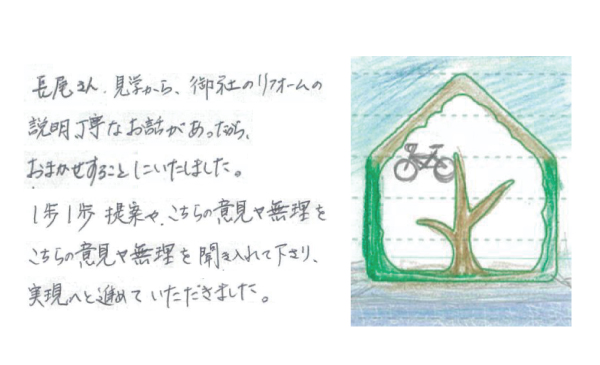 長尾さん、見学から、御社のリフォームの
説明丁寧なお話があったから、
おまかせすることにいたしました。
1歩1歩 提案や、こちらの意見や無理を
こちらの意見や無理を聞き入れて下さり、
実現へと進めていただきました。